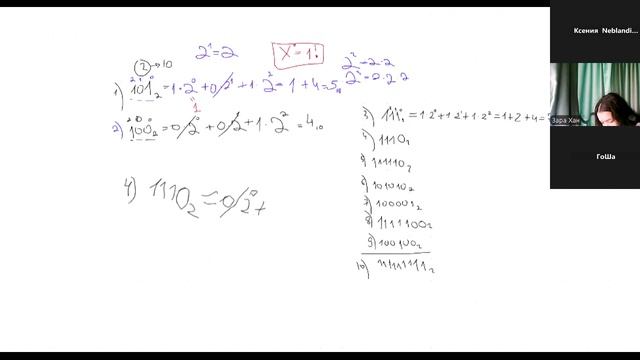 2¹=2
X⁰=1!
2²=2·2
2³=2·2·2
② → 10
1) 101₂ = 1·2⁰+0·2¹+1·2² = 1+4=5₁₀
2) 100₂ = 0·2⁰+0·2¹+1·2² = 4₁₀
4) 1110₂ = 0·2⁰+
3) 111₂ = 1·2⁰+1·2¹+1·2² = 1+2+4=
4) 1110₂
5) 11110₂
6) 101010₂
7) 100001₂
8) 1111100₂
9) 100100₂
10) 11111111₂
Ксения Neblandi...
Зара Хан
ГоШа